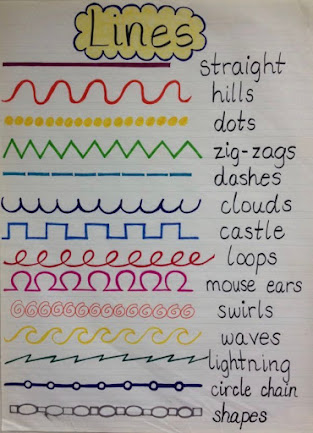 Lines
straight
hills
dots
zig-zags
dashes
clouds
castle
loops
mouse ears
swirls
waves
lightning
circle chain
shapes